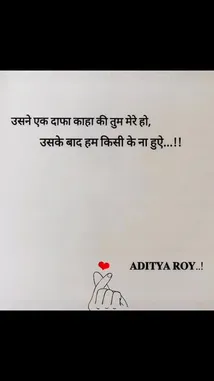 उसने एक दाफा काहा की तुम मेरे हो,
उसके बाद हम किसी के ना हुऐ...!!
ADITYA ROY..!